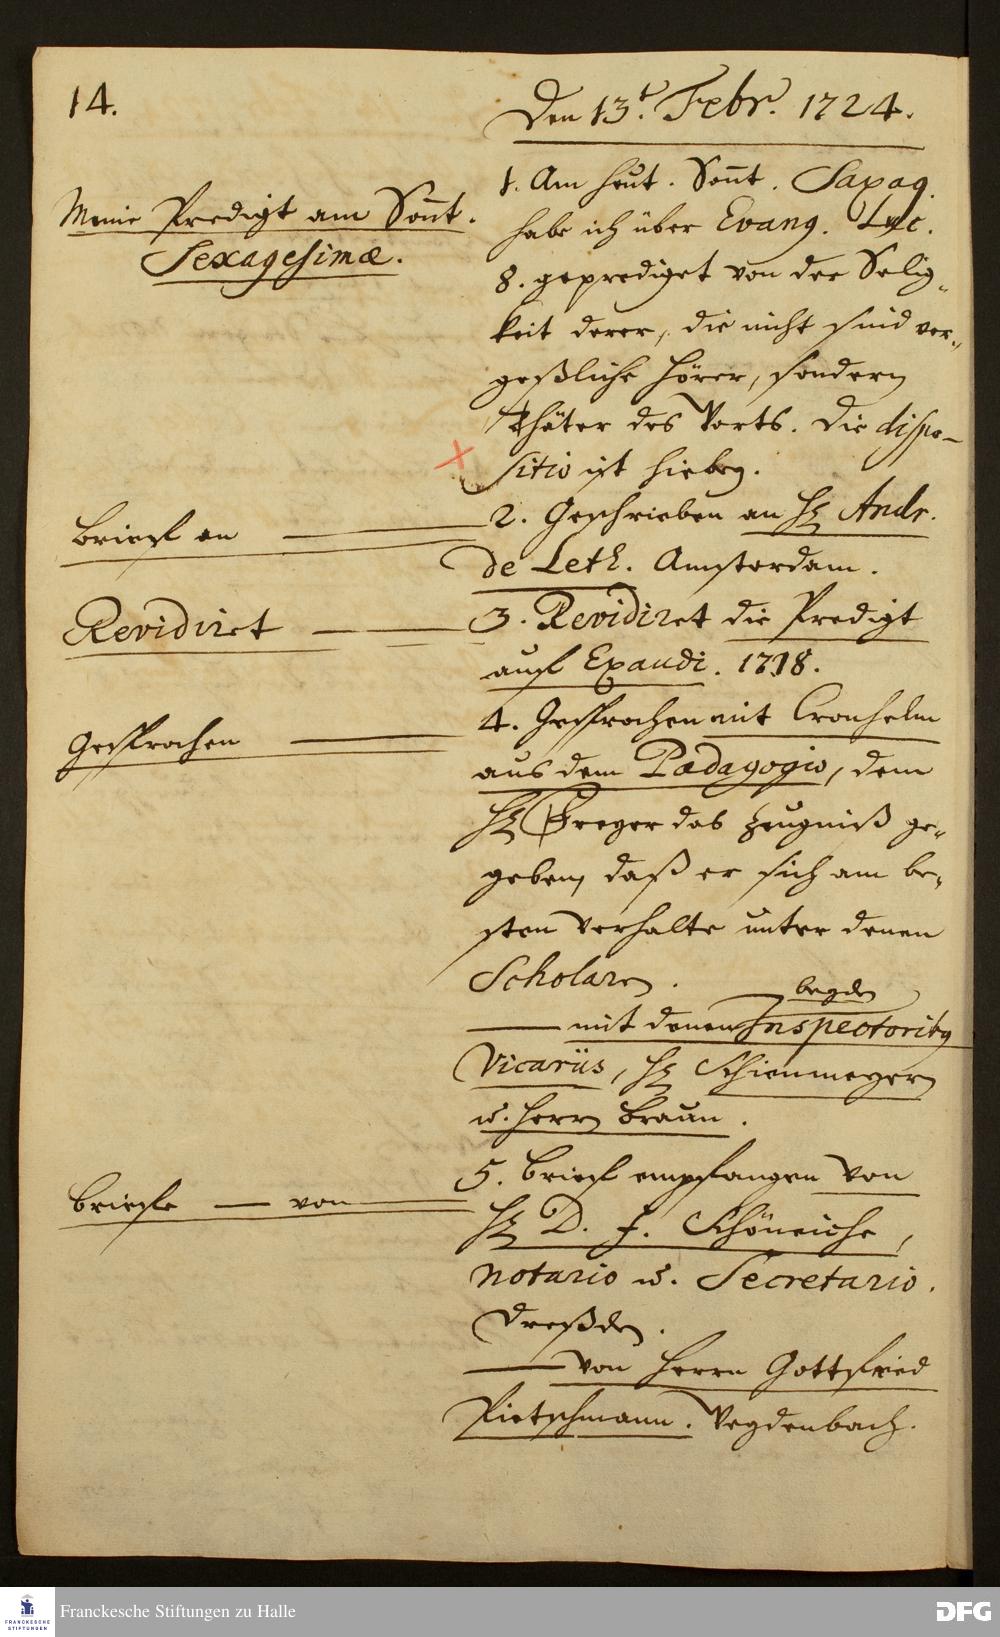 14.
Den 13.t Febr. 1724.
Meine Predigt am Sont.
Sexagesimæ.
1. Am heut. Sont. Saxag.
habe ich über Evang. Luc.
8. geprediget von der Selig„
keit derer, die nicht sind ver„
geßliche Hörer, sondern
Thäter des Worts. Die dispo-
sitio ist hiebey.
Brief an
2. Geschrieben an H. Andr.
de Leth. Amsterdam.
Revidiret
3. Revidiret die Predigt
auf Exaudi. 1718.
Gesprochen
4. Gesprochen mit Cronhelm
aus dem Pædagogio, dem
H. Freyer das Zeugniß ge„
geben, daß er sich am be„
sten verhalte unter denen
Scholaren.
beyden
mit denen Inspectoribus
Vicariis, H. Schienmeyern
u. Herrn Braun.
Briefe von
5. Brief empfangen von
H. D. J. Schöneiche,
Notario u. Secretario.
Dreßden.
von Herrn Gottfried
Pietschmann. Weydenbach.
Franckesche Stiftungen zu Halle
FRANCKESCHE
STIFTUNGEN
DFG